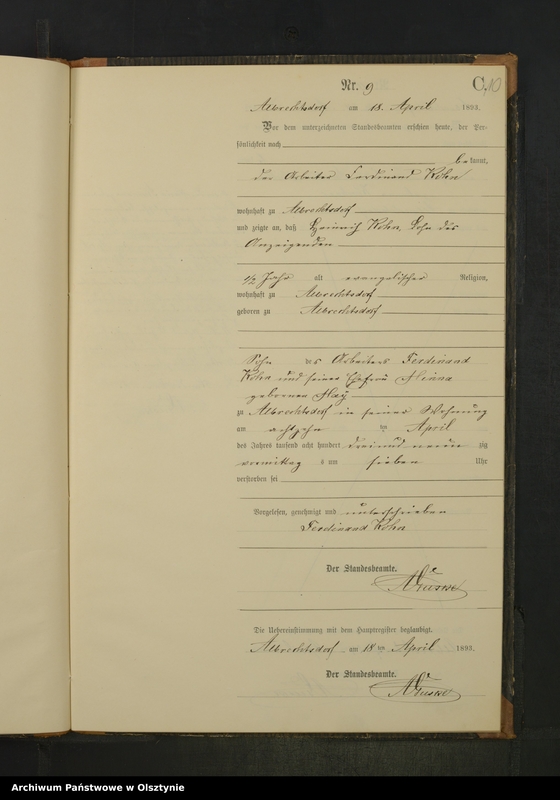 Nr. 9
C. 10
Albrechtsdorf am 18. April 1893.
Vor dem unterzeichneten Standesbeamten erschien heute, der Per-
sönlichkeit nach
bekannt,
der Arbeiter Ferdinand Kohn
wohnhaft zu Albrechtsdorf
und zeigte an, daß Heinrich Kohn, Sohn des
Anzeigenden
1/2 Jahr alt evangelischer Religion,
wohnhaft zu Albrechtsdorf
geboren zu Albrechtsdorf
Sohn des Arbeiters Ferdinand
Kohn und seiner Ehefrau Minna
geborenen May
zu Albrechtsdorf in seiner Wohnung
am achtzehn ten April
des Jahres tausend acht hundert dreiund neun zig
vormittag s um sieben Uhr
verstorben sei
Vorgelesen, genehmigt und unterschrieben
Ferdinand Kohn
Der Standesbeamte.
Die Uebereinstimmung mit dem Hauptregister beglaubigt.
Albrechtsdorf am 18 ten April 1893.
Der Standesbeamte.
Archiwum Państwowe w Olsztynie